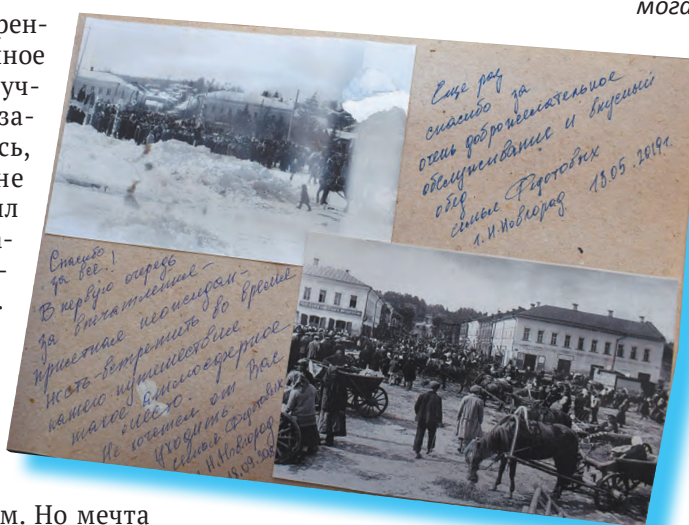 мога
рен-
ное
уч-
за-
сь,
не
Еще раз
спасибо за
очень доброжелательное
обслуживание и вкусный
обед
семья Федотовых
г. Н.Новгород 18.05.2019г.
Спасибо
за всё!
В первую очередь
за впечатление-
приятная неожидан-
ность-встретить во время
нашего путешествия
такое атмосферное
место.
Не хочется от Вас
уходить.
семья Федотовых
Н.Новгород
м. Но мечта